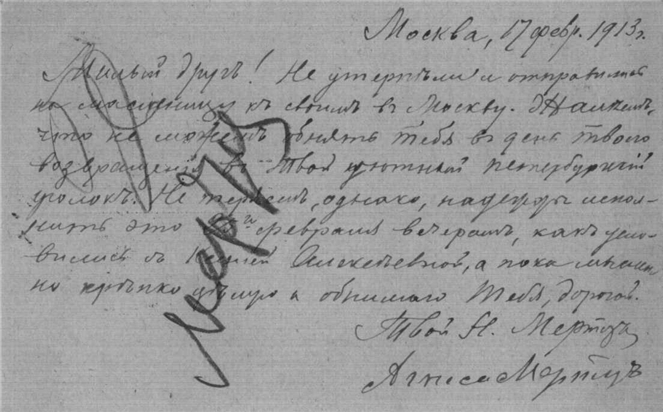 Москва, 17 февр. 1913 г.
Милый другъ! Не утерпѣли и отправились
на масленицу къ своимъ в Москву.
что не можемъ обнять тебя в день твоего
возвращенія в Твой уютный петербургскій
уголокъ. Не теряемъ, однако, надежды испол-
нить это февраля вечеромъ, какъ усло-
вились съ Алексѣевной, а пока
но крѣпко цѣлую и обнимаю Тебя, дорогой.
Твой Н.